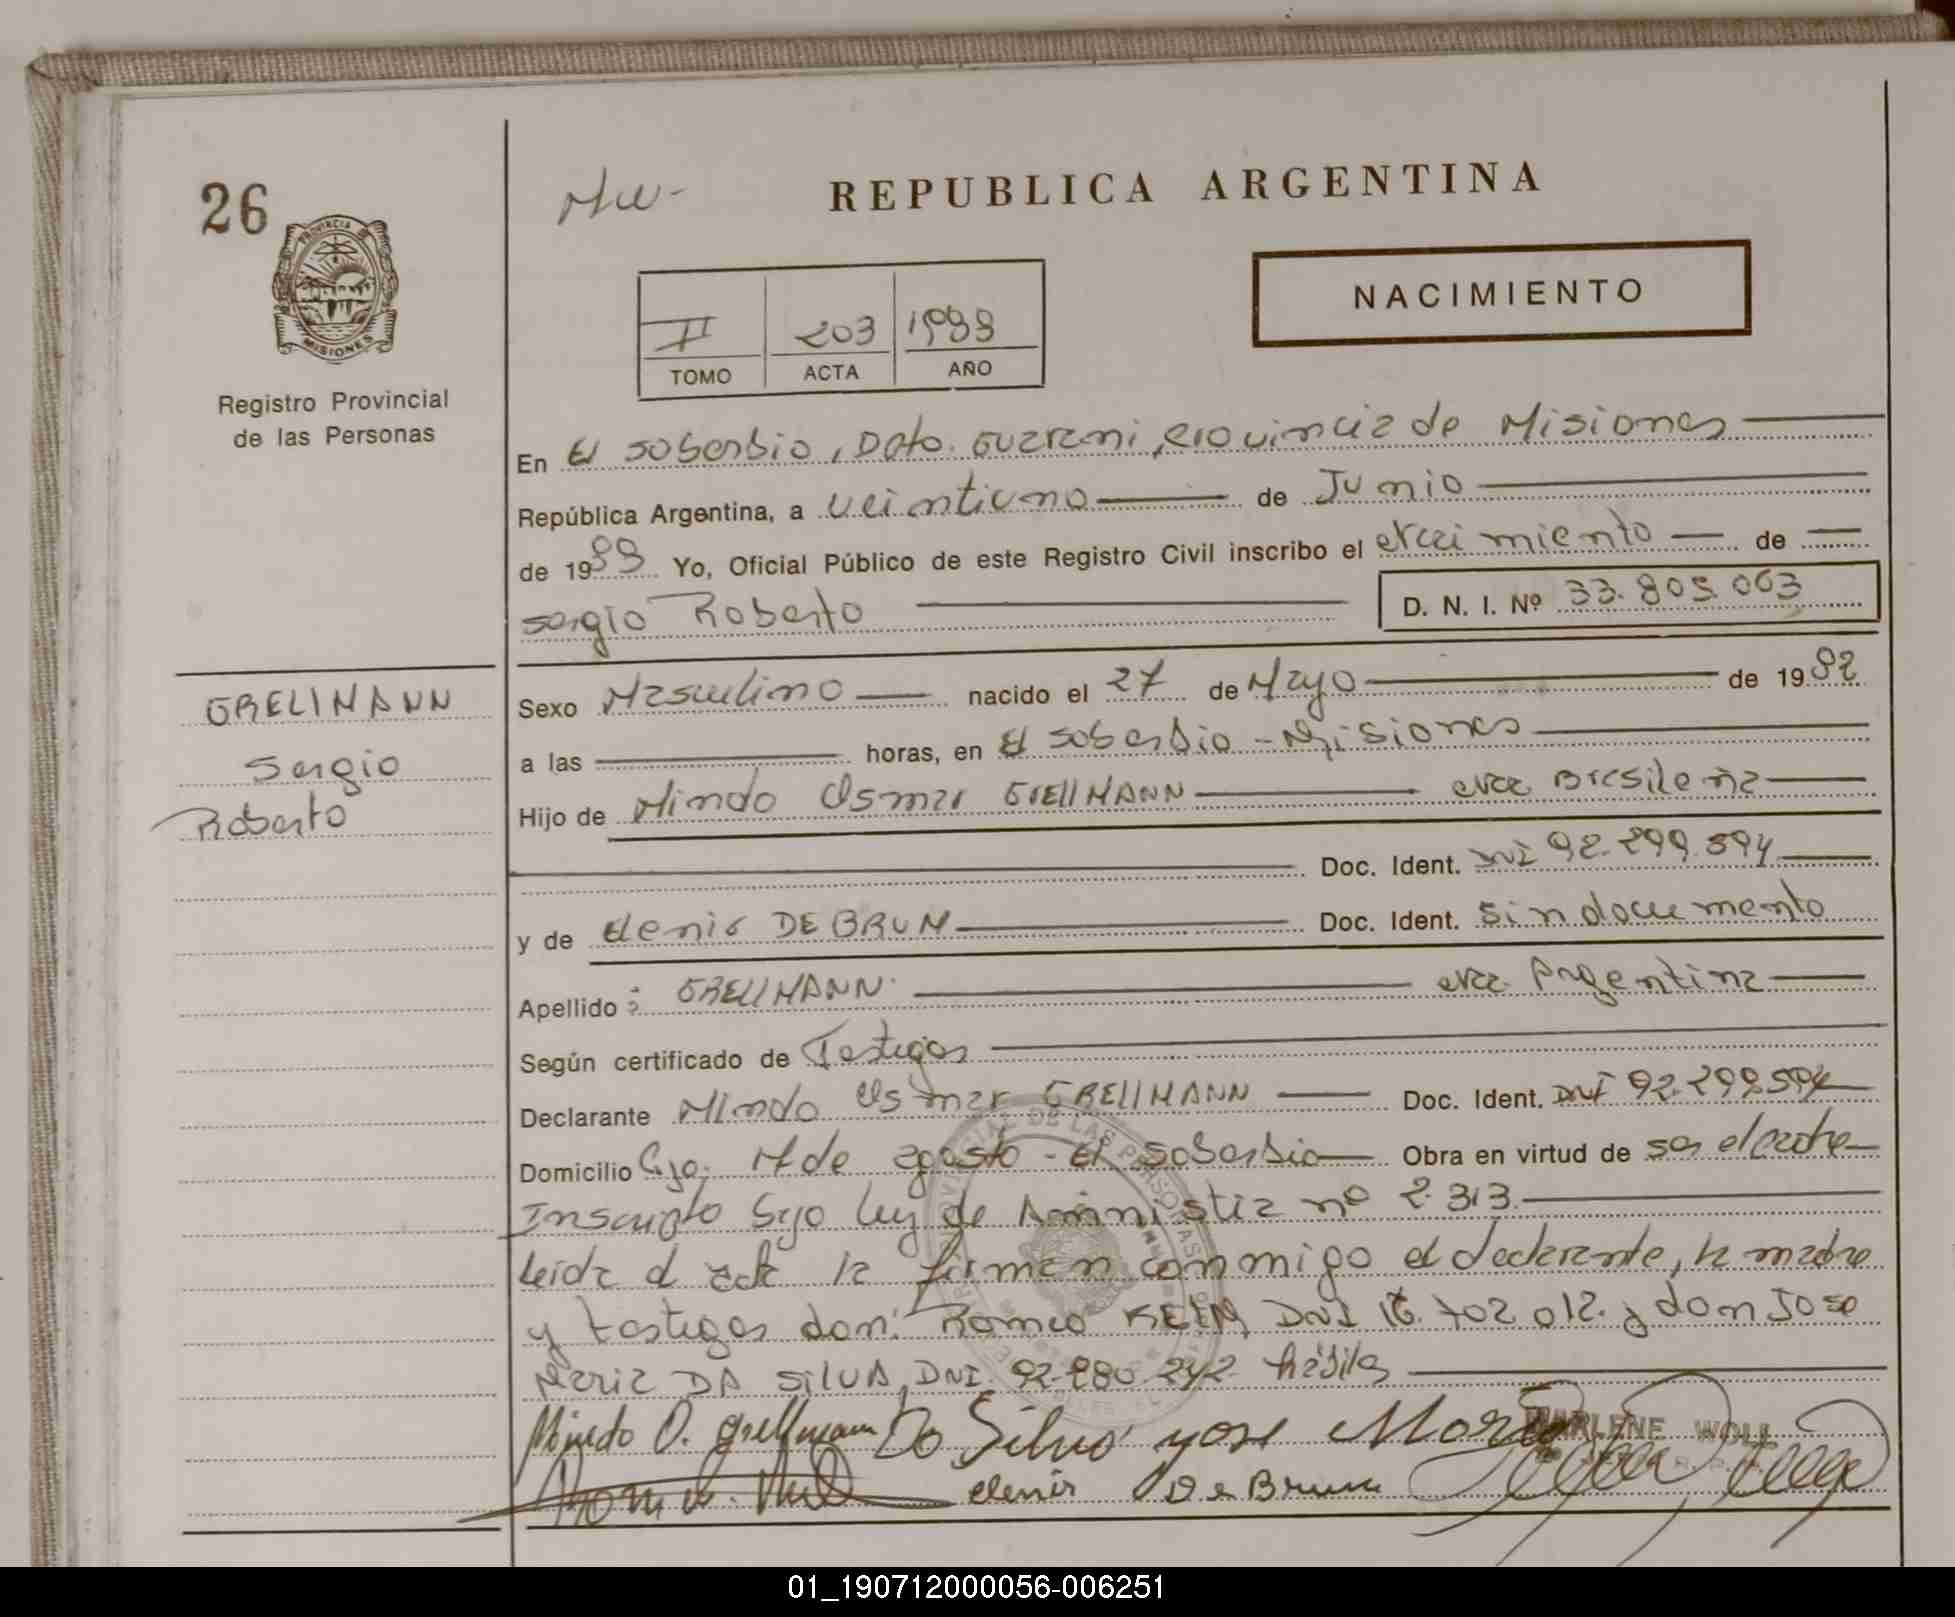 26
Mw-
REPUBLICA ARGENTINA
NACIMIENTO
PROVINCIA DE
MISIONES
II 203 1989
TOMO ACTA AÑO
Registro Provincial
de las Personas
En El Soberbio, Dpto. Guarani, Provincia de Misiones
República Argentina, a veintiuno de Junio
de 1989 Yo, Oficial Público de este Registro Civil inscribo el Nacimiento de
Sergio Roberto D. N. I. Nº 33.805.063
GRELLMANN
Sergio
Roberto
Sexo Masculino nacido el 27 de Mayo de 1982
a las horas, en El Soberbio - Misiones
Hijo de Mindo Osmar GRELLMANN Nac Brasileña
Doc. Ident. DNI 92.299.594
y de Elenir DE BRUM Doc. Ident. Sin documento
Apellido: GRELLMANN. Nac. Argentina
Según certificado de Testigos
Declarante Mindo Osmar GRELLMANN Doc. Ident. DNI 92.299.594
Domicilio 17 de agosto - El Soberbio Obra en virtud de ser el padre
Inscripto bajo ley de Amnistia nº 2.313.
Leida el acta la firman conmigo el declarante, la madre
y testigos don: Romeo KEIN, DNI 16.702.012. y don Jose
Maria DA SILVA, DNI. 92.280.242. hábiles
Mindo O. Grellmann Da Silva yose Maria
MARLENE WOLL
Elenir De Brum
01_190712000056-006251